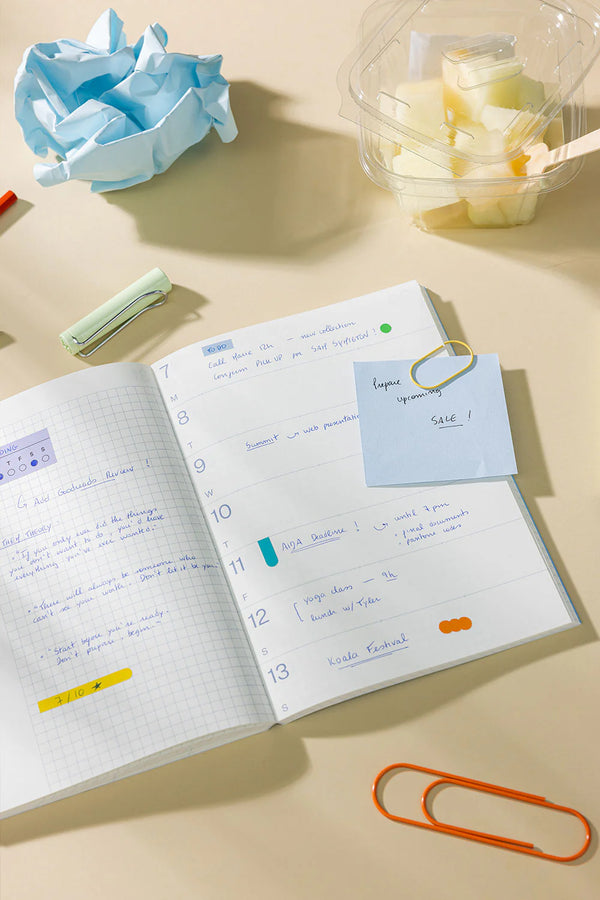 DING
T F S S
Add Goodreads Review !
THEM THEORY
• "If you only ever did the things
you don't want to do, you'd have
everything you've ever wanted."
• "There will always be someone who
can't see your worth. Don't let it be you.
• "Start before you're ready.
Don't prepare, begin."
7/10 ★
7
M
TO DO
Call Marie 12h — new collection
Confirm PICK UP for
8
T
9
W
Summit → web presentatio
10
T
11
F
Deadline ! → until 7 pm
• final documents
• pantone uses
12
S
yoga class — 9h
lunch w/ Tyler
13
S
Koala Festival
Prepare
upcoming
SALE !